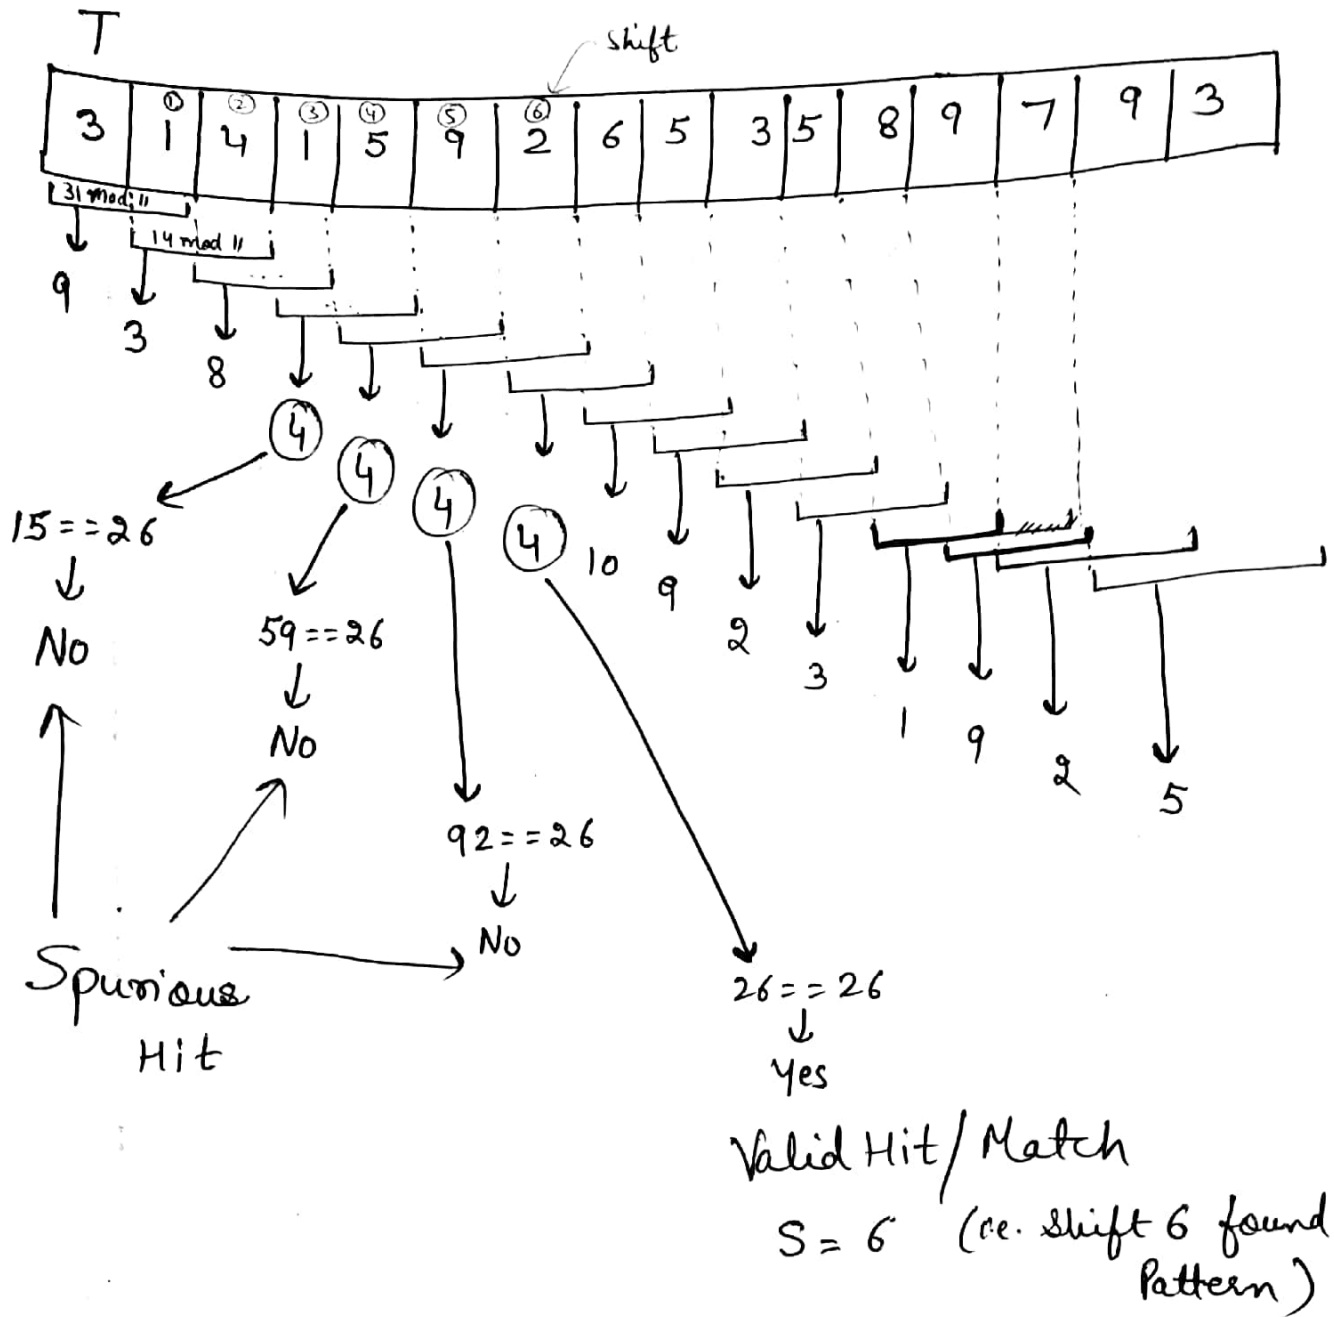 T
shift
① ② ③ ④ ⑤ ⑥
3 1 4 1 5 9 2 6 5 3 5 8 9 7 9 3
31 mod 11
14 mod 11
9
3
8
4
4
4
4
10
9
2
3
1
9
2
5
15==26
No
59==26
No
92==26
No
Spurious
Hit
26==26
Yes
Valid Hit/Match
S=6 (i.e. shift 6 found
Pattern)